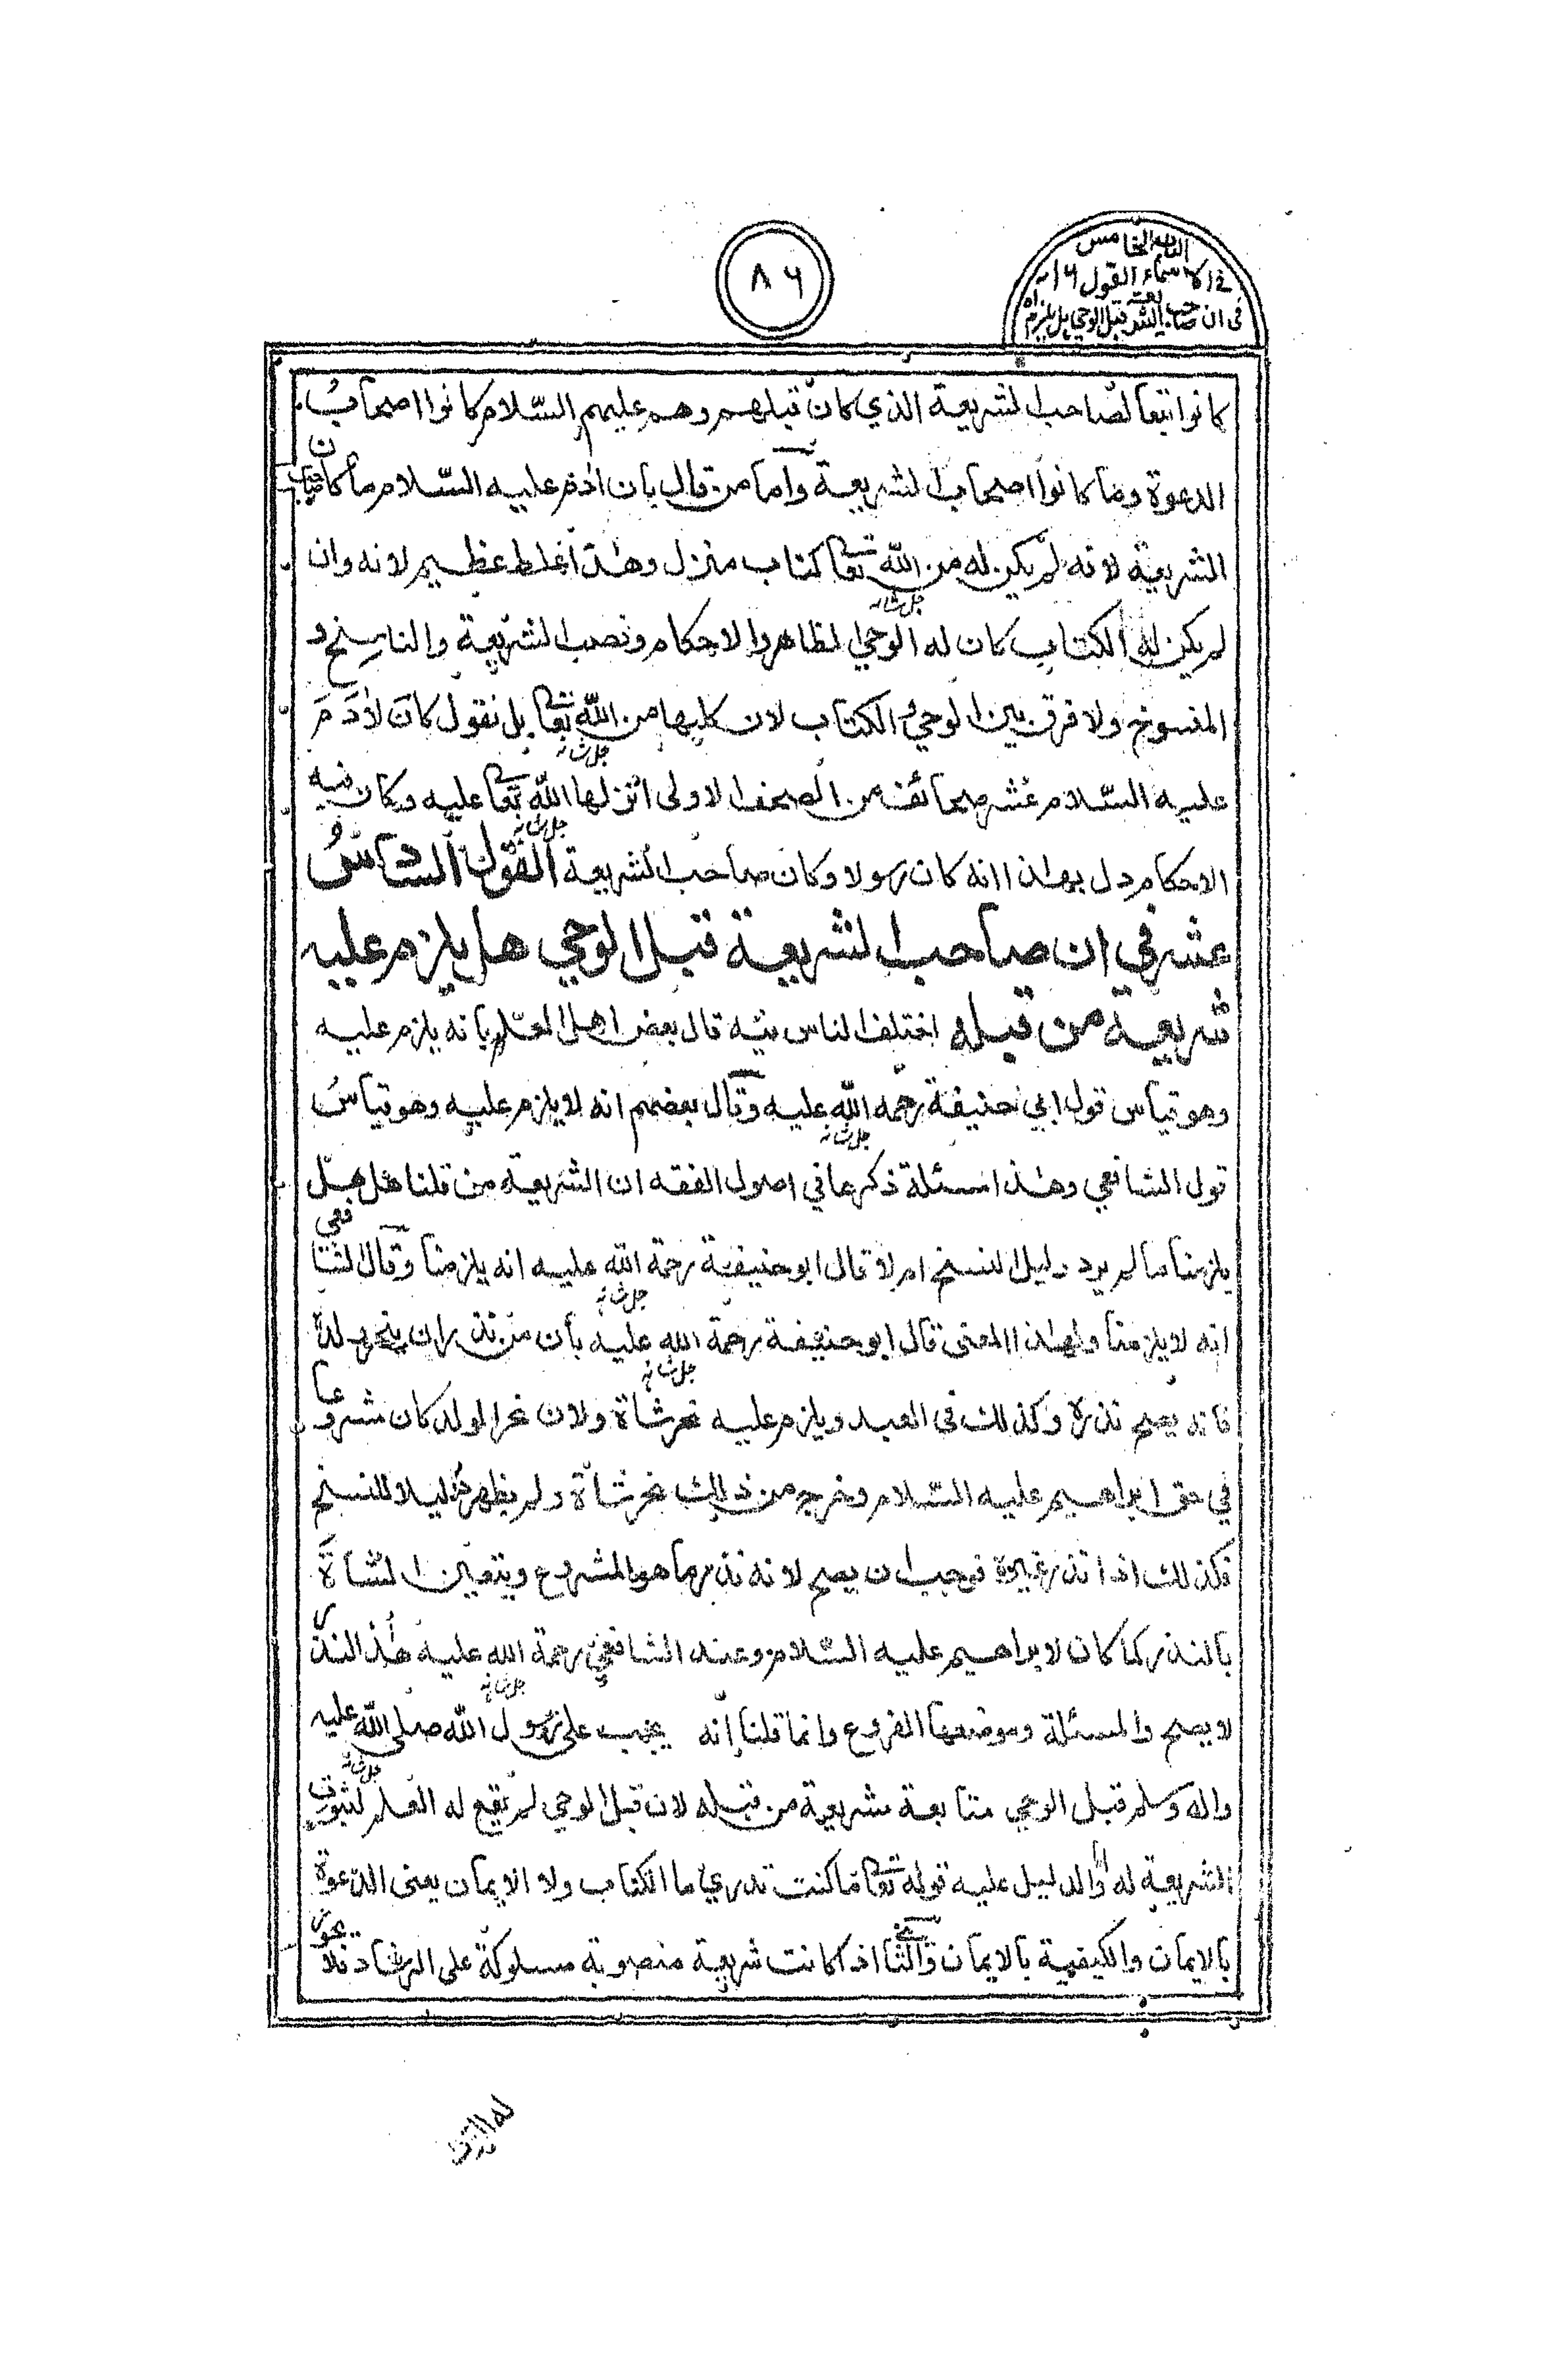 الباب الخامس
في الاسماء القول ١٦
في ان صاحب الشريعة قبل الوحي هل يلزم اه
٨٦
كانوا تبعا لصاحب الشريعة الذي كان قبلهم وهم عليهم السّلام كانوا اصحاب
الدعوة وما كانوا اصحاب الشريعة واما من قال بان اٰدم عليه السّلام ما كان صاحب
الشريعة لانه لم يكن له من اللّٰه تعا كتاب منزل وهٰذا غلط عظيم لانه وان
جل شانه
لم يكن له الكتاب كان له الوحي لظاهر الاحكام ونصب الشريعة والناسخ و
المنسوخ ولا فرق بين الوحي والكتاب لان كليها من اللّٰه تعا بل نقول كان لاٰدَمَ
جل شانه
عليه السّلام عشر صحائف من الصحف الاولى انزلها اللّٰه تعا عليه وكان فيه
جل شانه
الاحكام دل بهٰذا انه كان رسولا وكان صاحب الشريعة القول السّادسُ
عشر في ان صاحب الشريعة قبل الوحي هل يلزم عليه
شريعة من قبله اختلف الناس فيه قال بعض اهل العلم بانه يلزم عليه
وهو قياس قول ابي حنيفة رحمه اللّٰه عليه وقال بعضهم انه لا يلزم عليه وهو قياسُ
جل شانه
قول الشافعي وهٰذا مسئلة ذكرها في اصول الفقه ان الشريعة من قلنا هل
يلزمنا ما لم يرد دليل النسخ ام لا قال ابو حنيفة رحمة اللّٰه عليه انه يلزمنا وقال الشافعي
جل شانه
انه لا يلزمنا ولهٰذا المعنى قال ابو حنيفة رحمة اللّٰه عليه بأن من نذر ان ينحر ولده
جل شانه
فانه يصح نذره وكذلك في العبد ويلزم عليه نحر شاة ولان نحر الولد كان مشروعا
في حق ابراهيم عليه السّلام وخرج من ذلك بنحر شاة ولم يظهر دليلا للنسخ
فكذلك اذا نذر غيره فوجب ان يصح لانه نذر بما هو المشروع ويتعين الشاة
بالنذر كما كان لابراهيم عليه السّلام وعند الشافعي رحمة اللّٰه عليه هٰذا النذر
جل شانه
لا يصح والمسئلة وموضعها الفروع وانما قلنا انه يجب على رسول اللّٰه صلى اللّٰه عليه
جل شانه
واله وسلم قبل الوحي متابعة شريعة من قبله لان قبل الوحي لم يقع له العلم لثبوت
الشريعة له والدليل عليه قوله تعا ما كنت تدري ما الكتاب ولا الايمان يعنى الدّعوة
بالايمان والكيفية بالايمان وَالثا اذا كانت شريعة منصوبة مسلوكة على الرشاد فلا يجوز